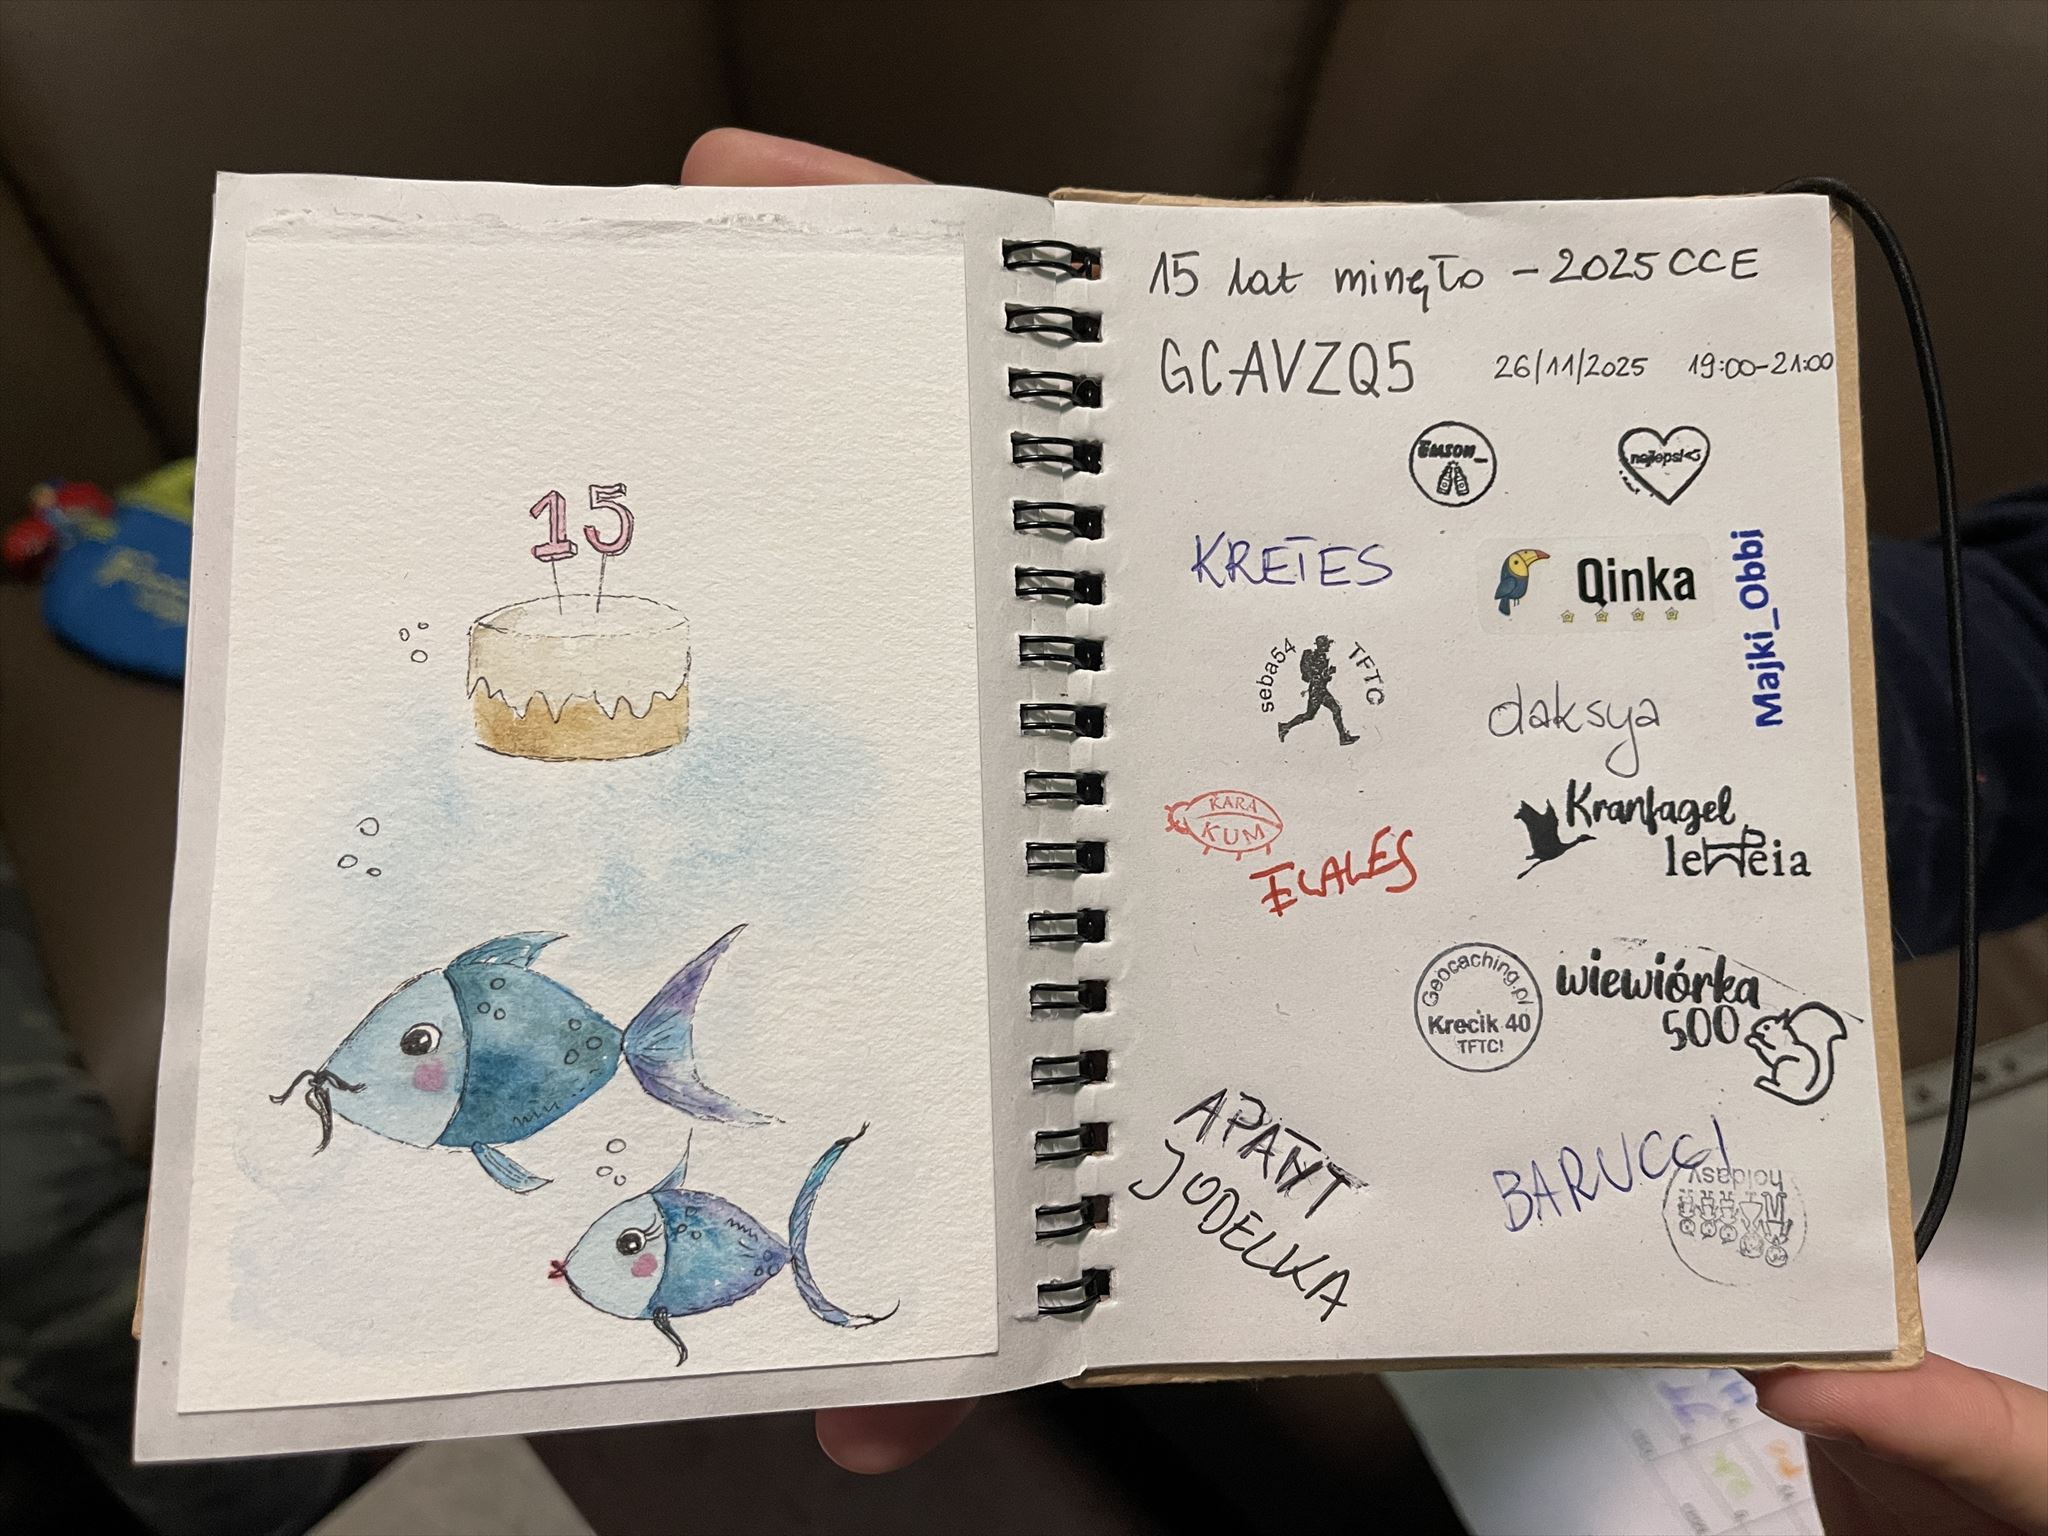 15
15 lat minęło - 2025 CCE
GCAVZQ5 26/11/2025 19:00-21:00
EMSON_
najlepsi<3
KRETES
Qinka
Majki_Obbi
seba54 TFTC
daksya
KARA
KUM
ECALES
Kranfagel
lenteia
Geocaching.pl
Krecik 40
TFTC!
wiewiórka
500
JODEŁKA
BARUCCI
holidasy